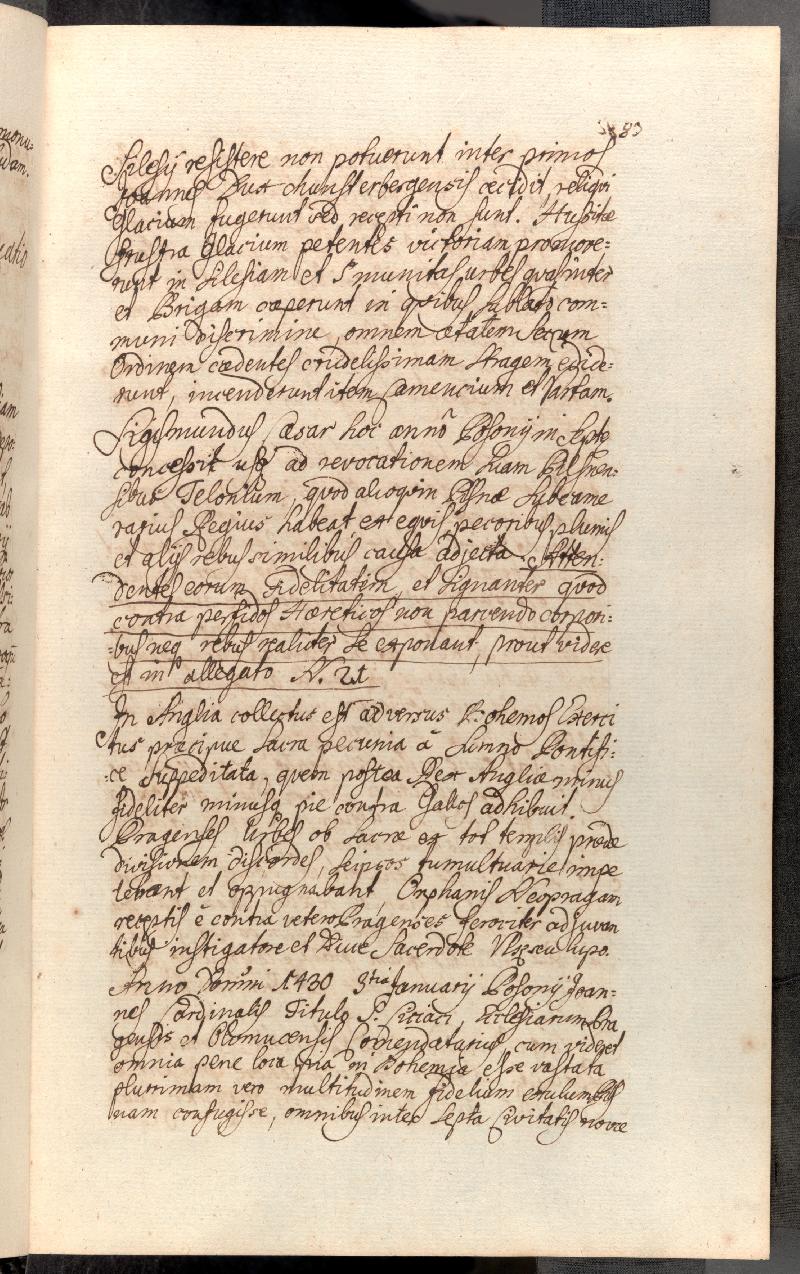 83
Silesij resistere non potuerunt inter primos
Joannes Dux Munsterbergensis cecidit, reliqui
Glacium fugerunt sed recepti non sunt. Hussitæ
frustra Glacium petentes victoriam promore=
runt in Silesiam et munitas urbes quas inter
et Brigam cæperunt in quibus sublato com=
muni discrimine, omnem ætatem sexum
Ordinem cædentes crudelissimam stragem edide=
runt, incenderunt item Camencium et
Sigismundus Cæsar hoc anno Posonij in
concessit usq ad revocationem suam Pilsnen=
sibus Telonium, quod alioquin Pilsnæ Subcame
rarius Regius habeat ex equis pecoribus plumis
et alijs rebus similibus causa adjecta: Atten=
dentes eorum Fidelitatem, et signanter quod
contra perfidos Hæreticos non parcendo corpori=
=bus neq rebus realiter se exponant, prout videre
est in allegato N. 21
In Anglia collectus est adversus Bohemos Exerci
tus præcipue Sacra pecunia á Summo Pontifi=
=ce suppeditata, quem postea Rex Angliæ minus
fideliter minusq pie contra Gallos adhibuit.
Pragenses Urbes ob Sacræ ex tot templis prædæ
divisionem discordes, seipsos tumultuarie impe
tebant et oppugnabant, Orphanis Neopragam
receptis é contra vetero Pragenses ferociter adjuvan
tibus instigatore et Duce Sacerdote
Anno Domini 1430 3tia Januarij Posonij Joan=
nes Cardinalis Titulo S. Ciriaci, Ecclesiarum Pra
gensis et Olomucensis Comendatarius cum videret
omnia pene loca pia in Bohemia esse vastata
plurimam vero multitudinem fidelium exulum Pils
nam confugisse, omnibus inter septa Civitatis novæ